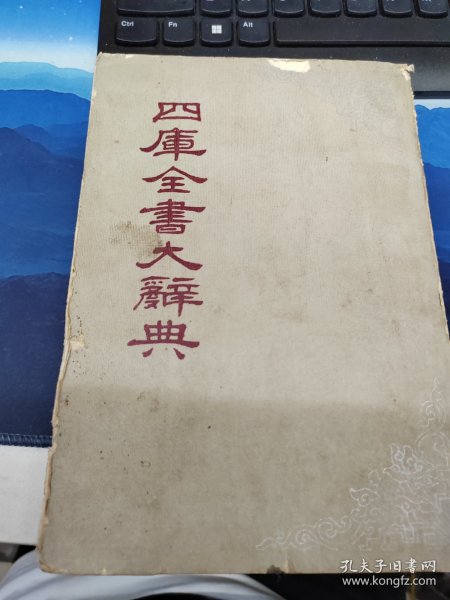 Ctrl
Fn
Alt
四庫全書大辭典
孔夫子旧书网
www.kongfz.com